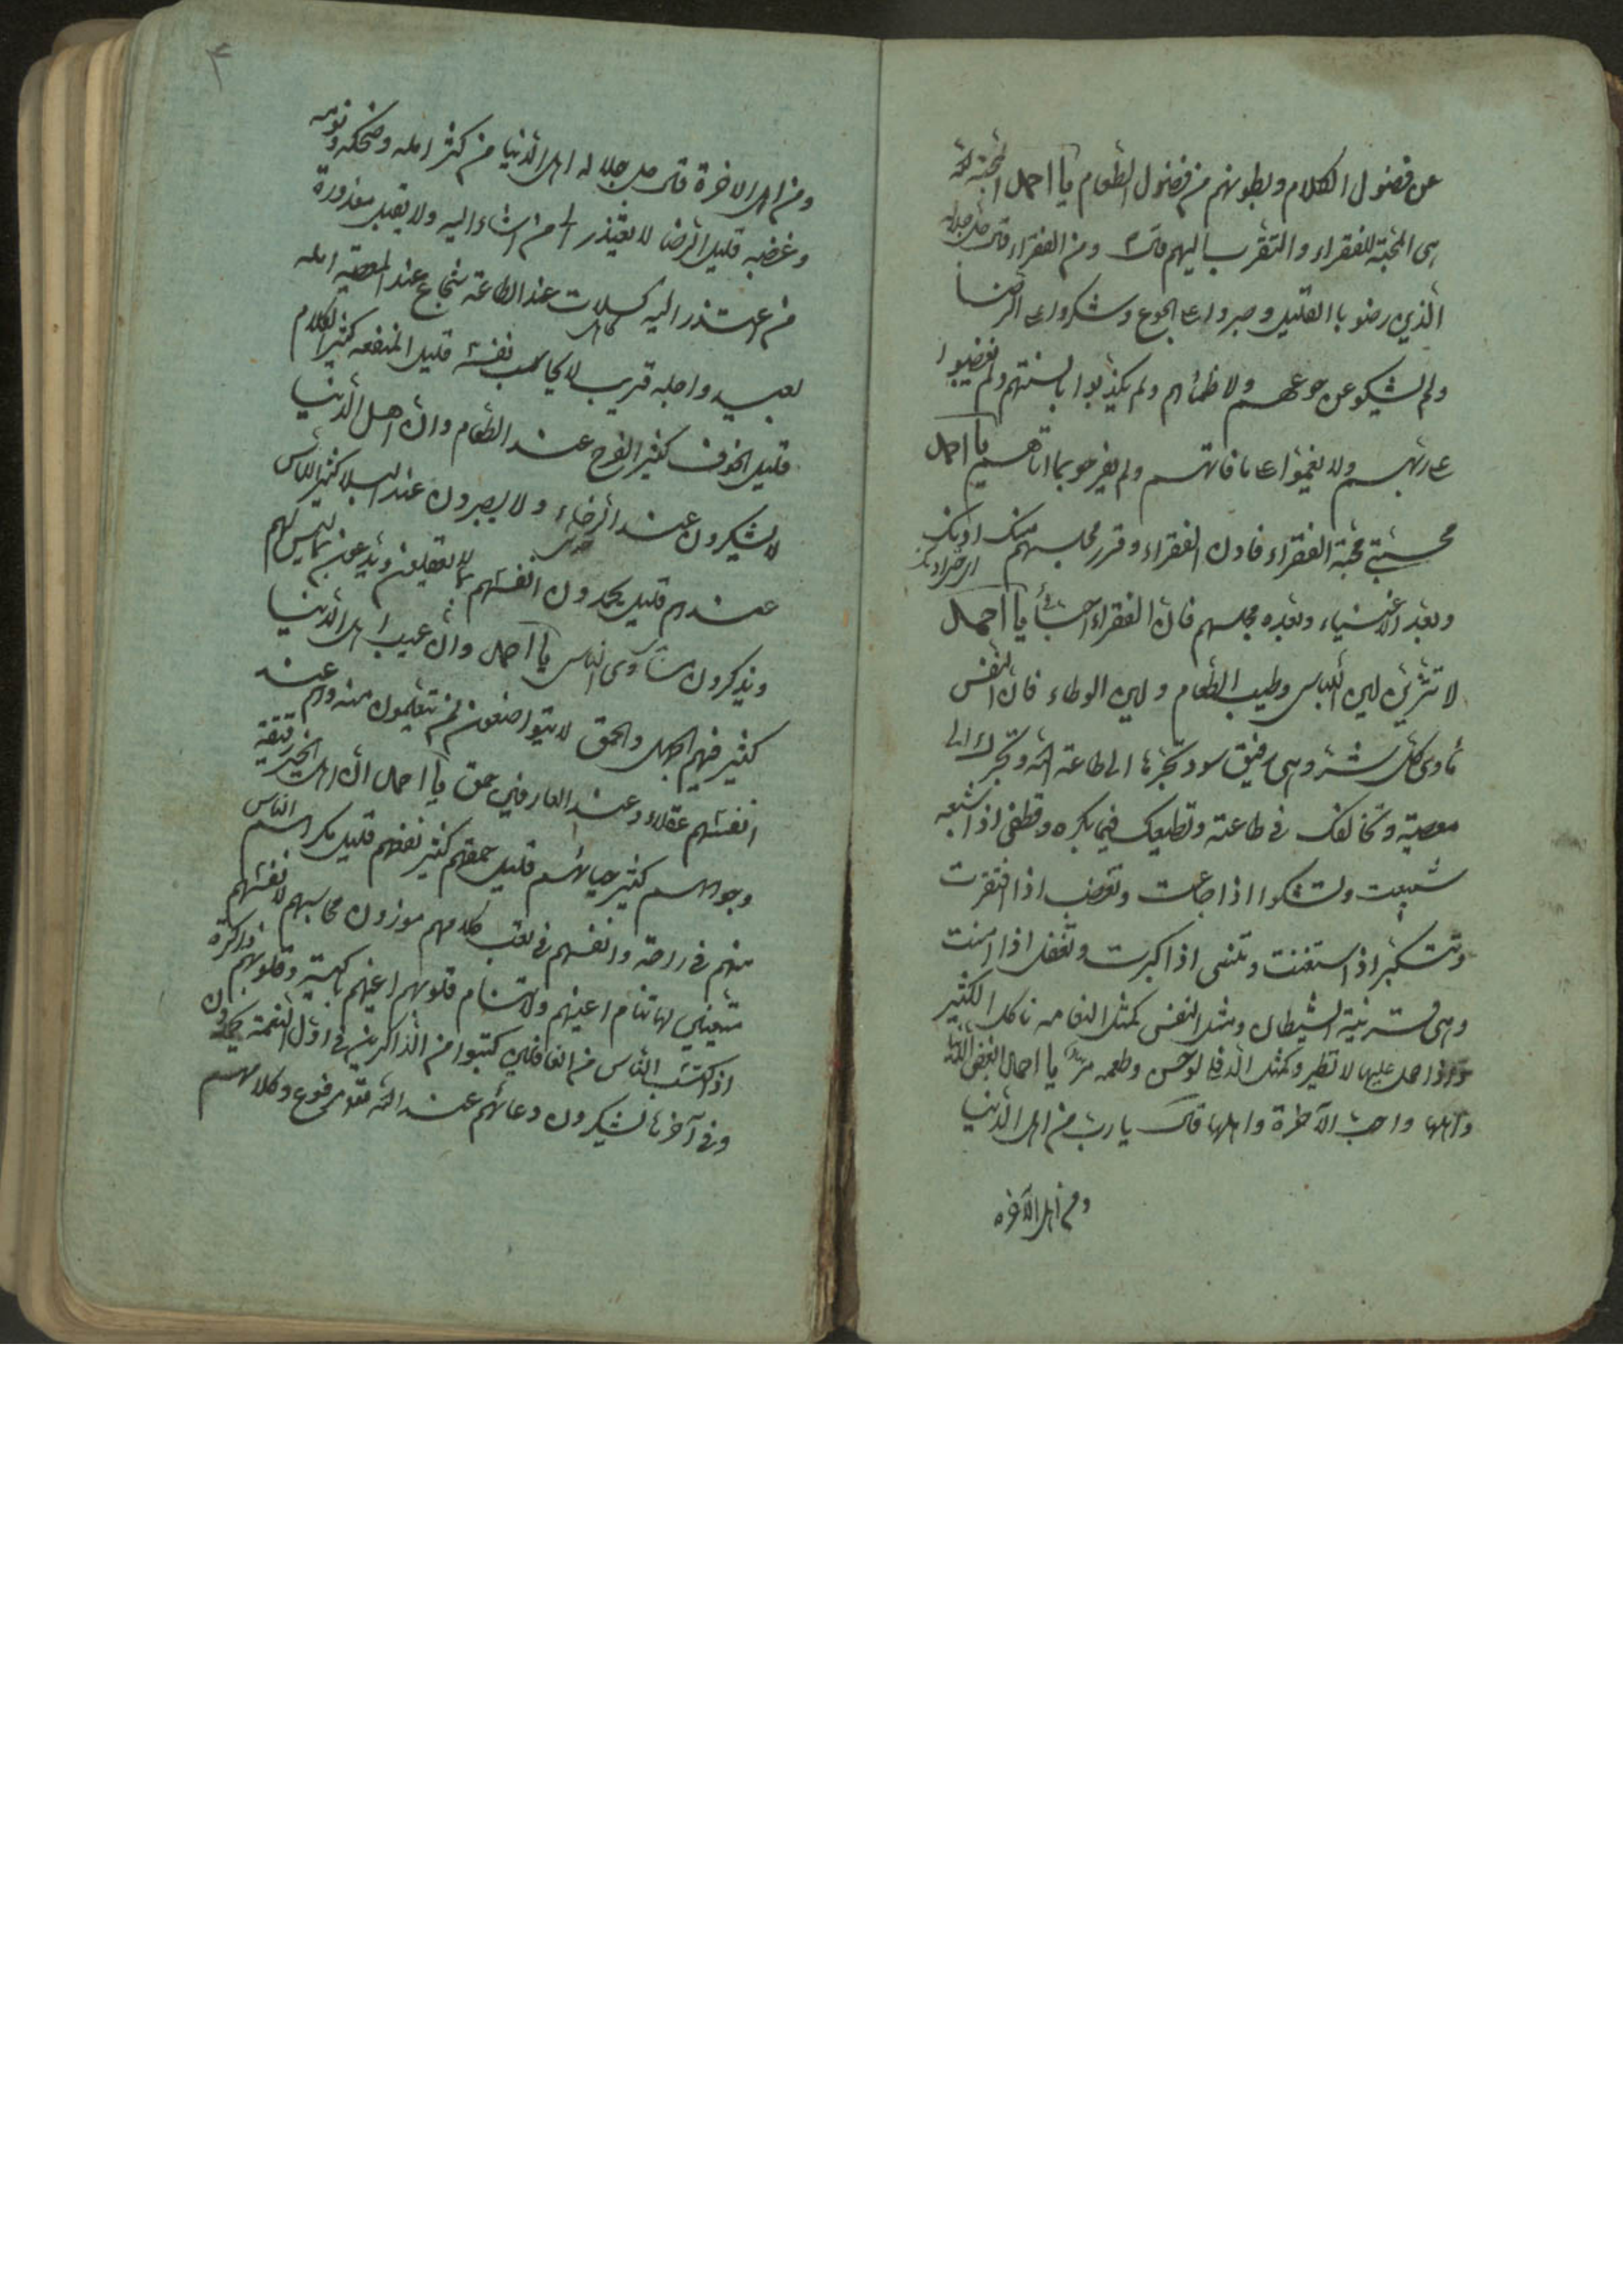 عن فضول الكلام وبطونهم من فضول الطعام يا احمد المحبة لله
هى المحبة للفقراء والتقرب اليهم قال ومن الفقراء قال جل جلاله
الذين رضو باالقليل وصبروا على الجوع وشكروا على الرضا
ولم يشكو عن جوعهم ولا ظمائهم ولم يكذبوا بالسنتهم ولم يغضبوا
على ربهم ولا يغموا على ما فاتهم ولم يفرحو بما اتاهم يا احمد
محبتي محبة الفقراء فادن الفقراء وقرر مجلسهم منك ادنك
وبعد الاغنياء وبعد مجلسهم فان الفقراء احبائي يا احمد
لا تتزين لين اللباس وطيب الطعام ولين الوطاء فان النفس
مأوى كل شر وهى رفيق سوء تجرها الى طاعة الله وتجرك الى
معصية وتخالفك فى طاعته وتطيعك فيما يكره وتطغى اذا شبعه
شبعت وتشكوا اذا جاعت وتغضب اذا افتقرت
وتتكبر اذ استغنت وتنسى اذا كبرت وتغفل اذا امنت
وهى قرينة الشيطان ومثل النفس كمثل النعامه تاكل الكثير
واذا حمل عليها لا تطير وكمثل الدفلى لونه حسن وطعمه مر يا احمد ابغض الدنيا
واهلها واحب الآخرة واهلها قال يا رب من اهل الدنيا
ومن اهل الآخره
۴
ومن اهل الاخرة قال جل جلاله اهل الدنيا من كثر اكله وضحكه ونومه
وغضبه قليل الرضا لا يعتذر الى من اساء اليه ولا يقبل معذورة
من اعتذر اليه كسلان عند الطاعة شجاع عند المعصية امله
بعيد واجله قريب لا يحاسب نفسه قليل المنفعه كثير الكلام
قليل الخوف كثير الفرح عند الطعام وان اهل الدنيا
لا يشكرون عند الرخاء ولا يصبرون عند البلا كثير الناس
عندهم قليل يحمدون انفسهم بما لا يفعلون ويدعون بما ليس لهم
ويذكرون مساوى الناس يا احمد وان عيب اهل الدنيا
كثير فيهم الجهل والحمق لا يتواضعون لمن يتعلمون منه وهم عند
انفسهم عقلاء وعند العارفين حمق يا احمد ان اهل الخير رقيقة
وجوههم كثير حيائهم قليل حمقهم كثير نفعهم قليل مكرهم الناس
منهم فى راحة وانفسهم فى تعب كلامهم موزون محاسبهم لانفسهم
متعبنين لها تنام اعينهم ولا تنام قلوبهم اعينهم باكية وقلوبهم ذاكرة
اذا كتب الناس من الغافلين كتبوا من الذاكرين فى اول النعمة يحمدون
وفى آخرها يشكرون دعائهم عند الله مرفوع وكلامهم